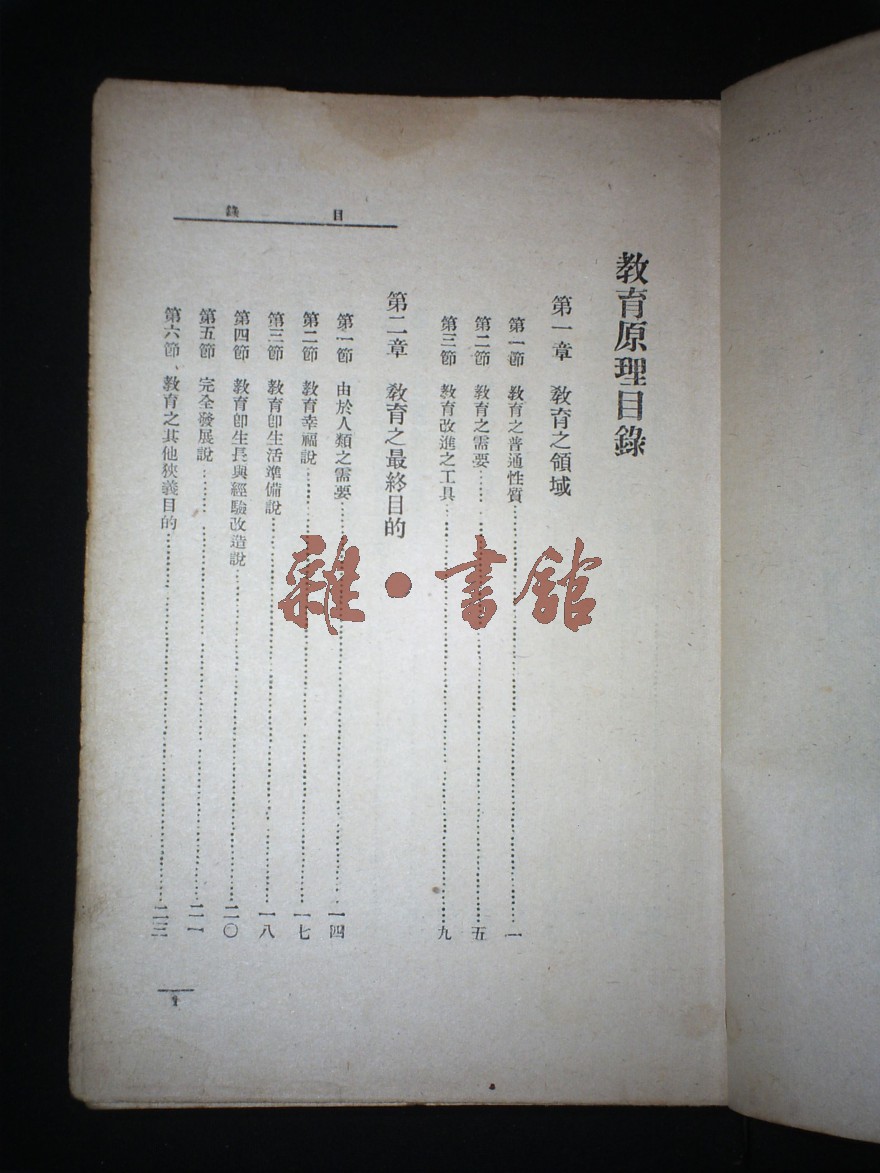 目錄
教育原理目錄
第一章 教育之領域
第一節 教育之普通性質……一
第二節 教育之需要……五
第三節 教育改進之工具……九
第二章 教育之最終目的
第一節 由於人類之需要……一四
第二節 教育幸福說……一七
第三節 教育卽生活準備說……一八
第四節 教育卽生長與經驗改造說……二〇
第五節 完全發展說……二一
第六節、教育之其他狹義目的……二三
雜·書館